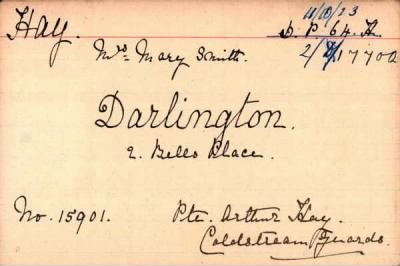 11/10/23
Hay. D. P. 64. A.
Mrs. Mary Smith. 2/8/17702
Darlington.
2. Bells Place.
No. 15901. Pte. Arthur Hay.
Coldstream Guards.